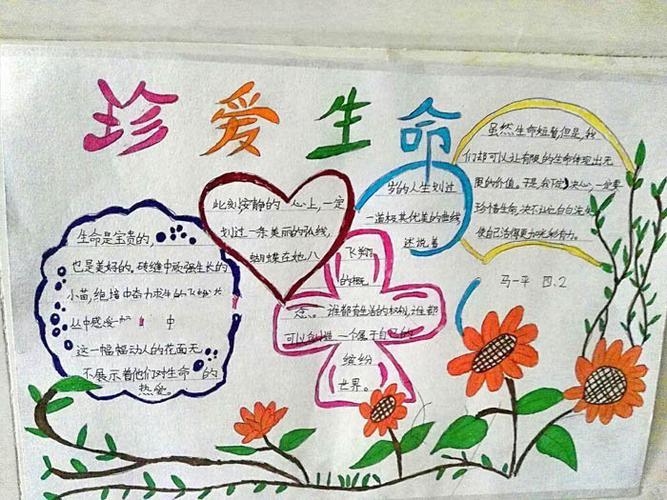 珍爱生命
生命是宝贵的,
也是美好的。砖缝中顽强生长的
小苗,绝境中奋力求生的飞蛾
丛中感受 中
这一幅幅动人的花面无
不展示着他们对生命的
热爱。
此刻安静的心上,一定
划过一条美丽的弘线,
蝴蝶在她八
岁的人生划过
一道极其优美的曲线,
述说着
飞翔
的概
念。谁都有生活的权利,谁都
可以创造一个属于自己的
缤纷
世界。
虽然生命短暂但是,我
们却可以让有限的生命体现出无
限的价值。于是,我下定决心,一定要
珍惜生命,决不让它白白流
使自己活得更加光彩有力。
马一平 四.2